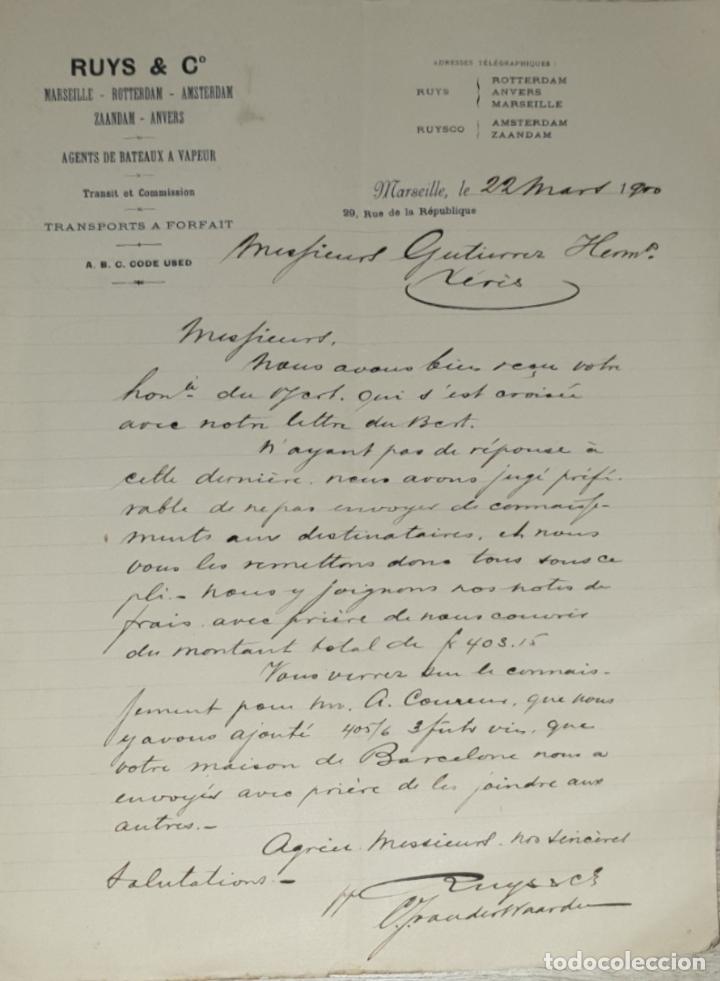 RUYS & Cº
MARSEILLE - ROTTERDAM - AMSTERDAM
ZAANDAM - ANVERS
AGENTS DE BATEAUX A VAPEUR
Transit et Commission
TRANSPORTS A FORFAIT
A. B. C. CODE USED
ADRESSES TÉLÉGRAPHIQUES :
RUYS
ROTTERDAM
ANVERS
MARSEILLE
RUYSCO
AMSTERDAM
ZAANDAM
Marseille, le 22 Mars 1900
29, Rue de la République
Messieurs Gutierrez Hermˢ.
Xérès
Messieurs,
Nous avons bien reçu votre
honᵉᵉ du crt. qui s'est croisée
avec notre lettre du crt.
N'ayant pas de réponse à
cette dernière, nous avons jugé préfé-
rable de ne pas envoyer de connaisse-
ments aux destinataires, et nous
vous les remettons donc tous sous ce
pli. - Nous y joignons nos notes de
frais avec prière de nous couvrir
du montant total de fr 403.15
Vous verrez sur le connais-
sement pour Mr. A. Coureur, que nous
y avons ajouté 405/6 3 futs vin, que
votre maison de Barcelone nous a
envoyés avec prière de les joindre aux
autres. -
Agréez Messieurs nos sincères
Salutations. -
pp Ruys & Cº
todocoleccion